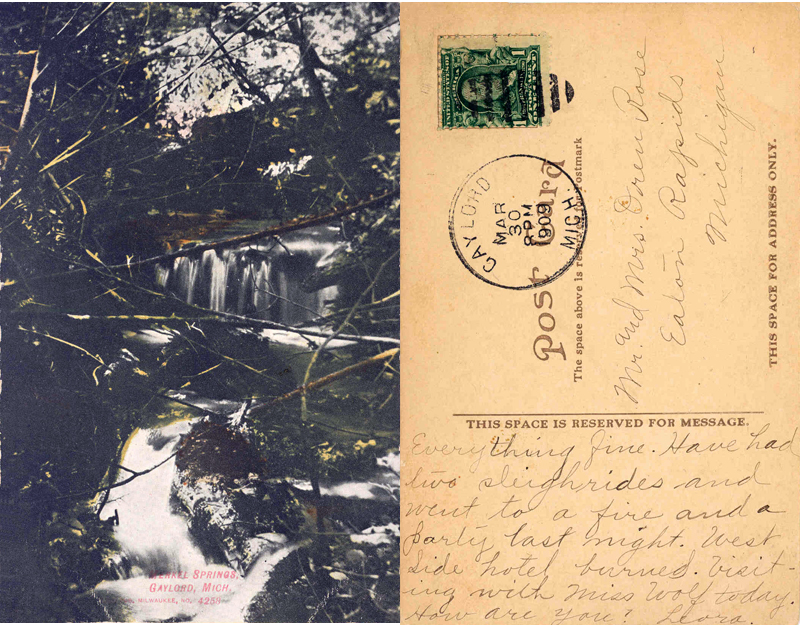 MERKEL SPRINGS,
GAYLORD, MICH.
MILWAUKEE, NO. 4254
1
GAYLORD
MAR
30
8-PM
1909
MICH.
Post Card
The space above is reserved for Postmark
Mr. and Mrs. Oren Rose
Eaton Rapids
Michigan
THIS SPACE FOR ADDRESS ONLY.
THIS SPACE IS RESERVED FOR MESSAGE.
Everything fine. Have had
two sleighrides and
went to a fire and a
party last night. West
side hotel burned. Visit-
ing with Miss Wolf today.
How are you? Leora.